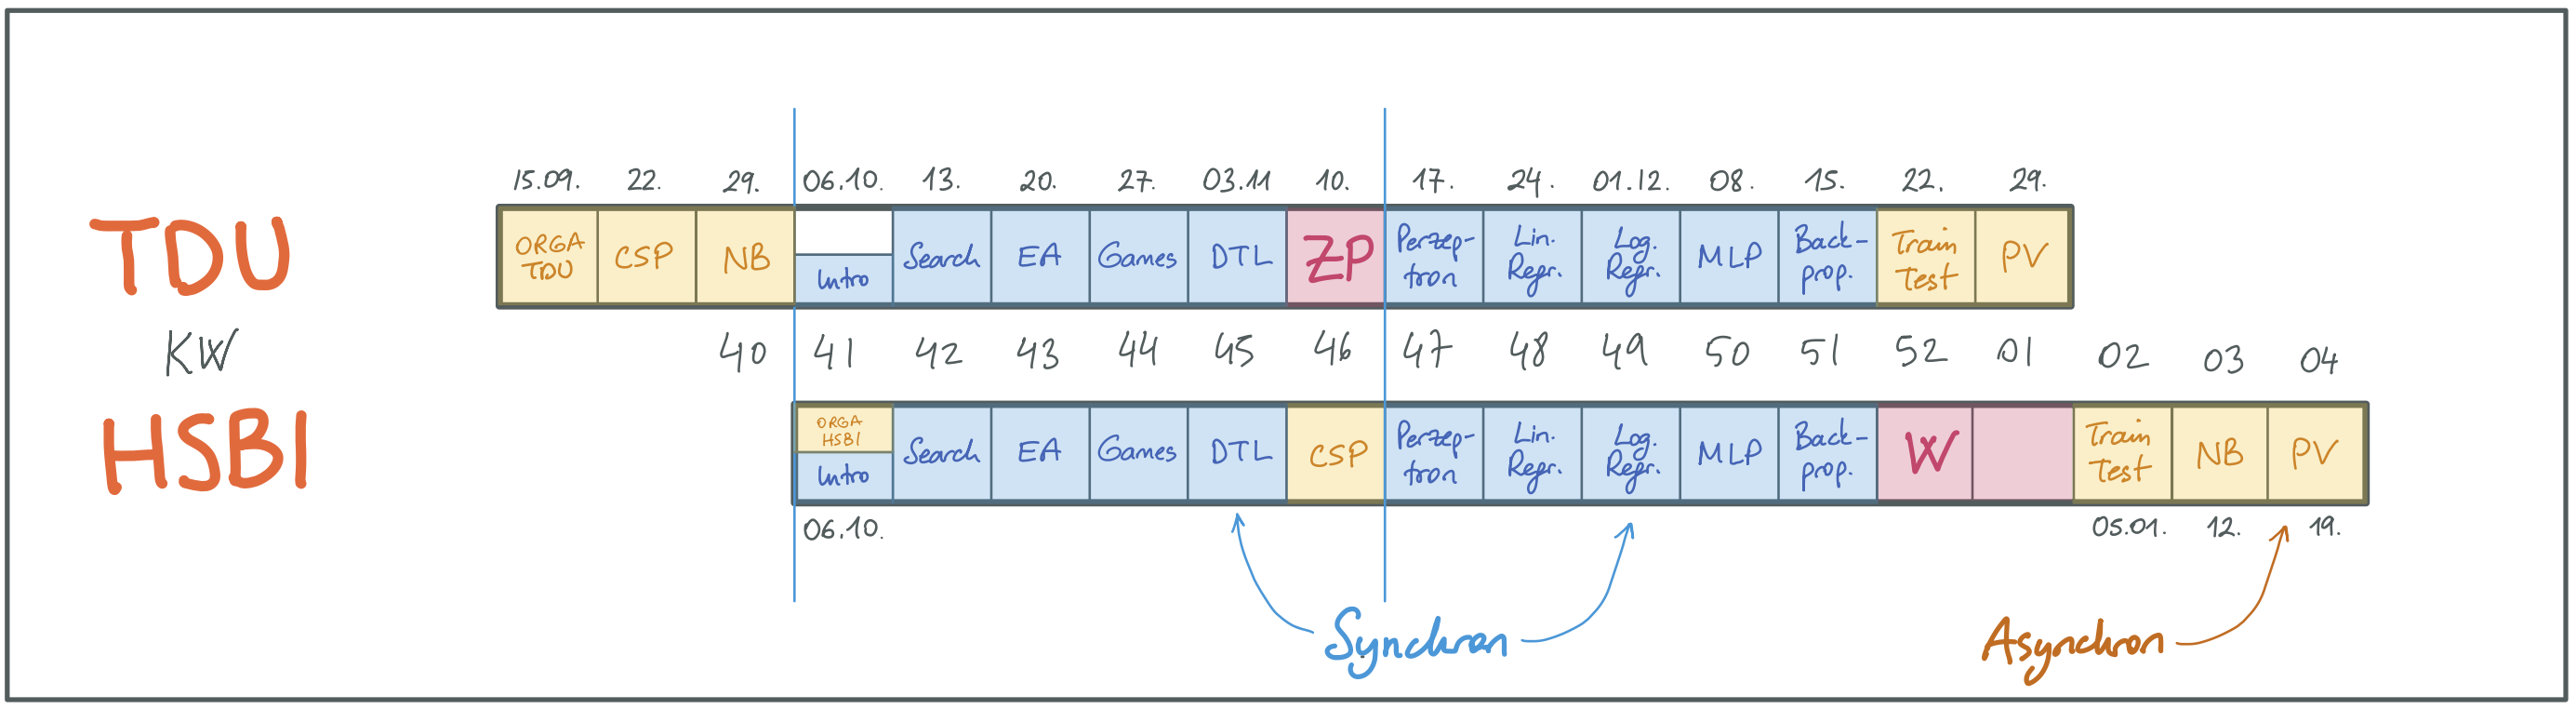 15.09. 22. 29. 06.10. 13. 20. 27. 03.11 10. 17. 24. 01.12. 08. 15. 22. 29.
TDU
ORGA
TDU
CSP
NB
Intro
Search
EA
Games
DTL
ZP
Perzep-
tron
Lin.
Regr.
Log.
Regr.
MLP
Back-
prop.
Train
Test
PV
KW 40 41 42 43 44 45 46 47 48 49 50 51 52 01 02 03 04
HSBI
ORGA
HSBI
Intro
Search
EA
Games
DTL
CSP
Perzep-
tron
Lin.
Regr.
Log.
Regr.
MLP
Back-
prop.
W
Train
Test
NB
PV
06.10. 05.01. 12. 19.
Synchron
Asynchron